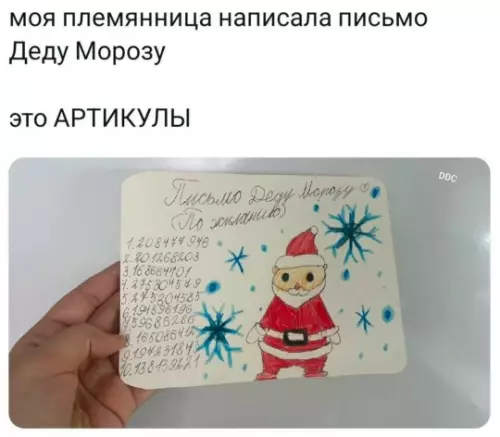 моя племянница написала письмо
Деду Морозу
это АРТИКУЛЫ
DDC
Письмо Деду Морозу
(По желанию)
1.208477946
2.201268203
3.168684101
4.275304549
5.275304585
6.191896196
7.59686286
9.194231847
10.138139221